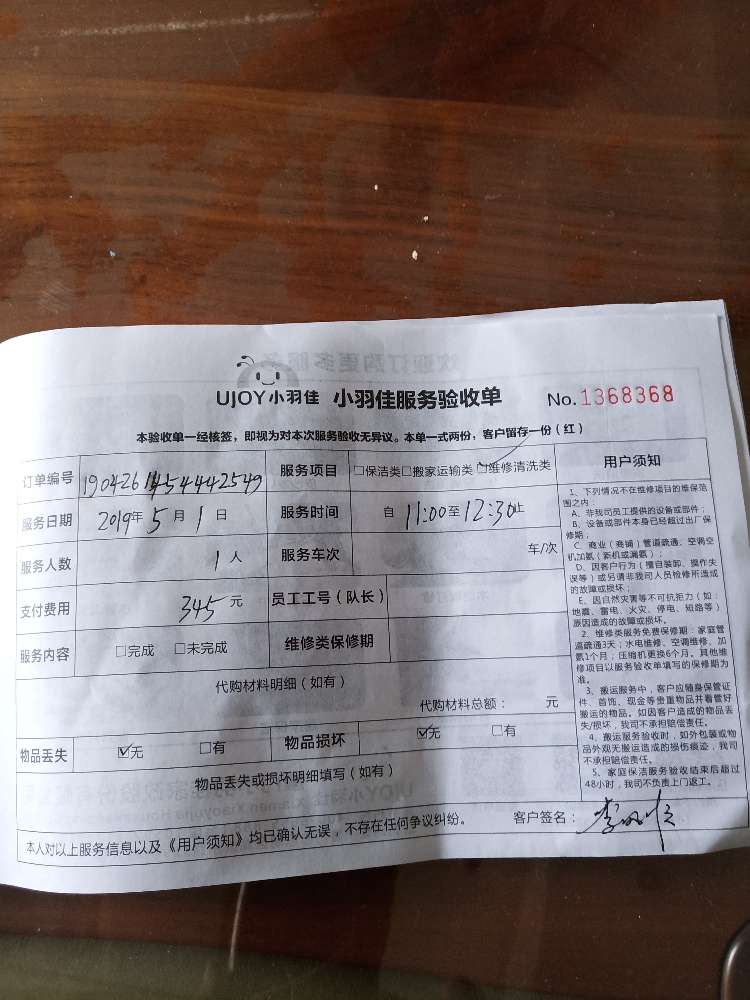 UJOY小羽佳 小羽佳服务验收单 No.1368368
本验收单一经核签，即视为对本次服务验收无异议。本单一式两份，客户留存一份（红）
订单编号 服务项目 □保洁类□搬家运输类☑维修清洗类
服务日期 2019年5月1日 服务时间 自11:00至12:30止
服务人数 1人 服务车次 车/次
支付费用 345元 员工工号（队长）
服务内容 □完成 □未完成 维修类保修期
代购材料明细（如有）
代购材料总额： 元
物品丢失 ☑无 □有 物品损坏 ☑无 □有
物品丢失或损坏明细填写（如有）
本人对以上服务信息以及《用户须知》均已确认无误，不存在任何争议纠纷。 客户签名：
用户须知
1、下列情况不在维修项目的维保范
围之内：
A、非我司员工提供的设备或部件；
B、设备或部件本身已经超过出厂保
修期；
C、商业（商铺）管道疏通、空调空
机加氨（新机或漏氨）；
D、因客户行为（擅自装卸、操作失
误等）或另请非我司人员检修所造成
的故障或损坏；
E、因自然灾害等不可抗拒力（如：
地震、雷电、火灾、停电、短路等）
原因造成的故障或损坏。
2、维修类服务免费保修期：家庭管
道疏通3天；水电维修、空调维修、加
氨1个月；压缩机更换6个月。其他维
修项目以服务验收单填写的保修期为
准。
3、搬运服务中，客户应随身保管证
件、首饰、现金等贵重物品并看管好
搬运的物品。如因客户造成的物品丢
失/损坏，我司不承担赔偿责任。
4、搬运服务验收时，如外包装或物
品外观无搬运造成的损伤痕迹，我司不
承担赔偿责任。
5、家庭保洁服务验收结束后超过
48小时，我司不负责上门返工。